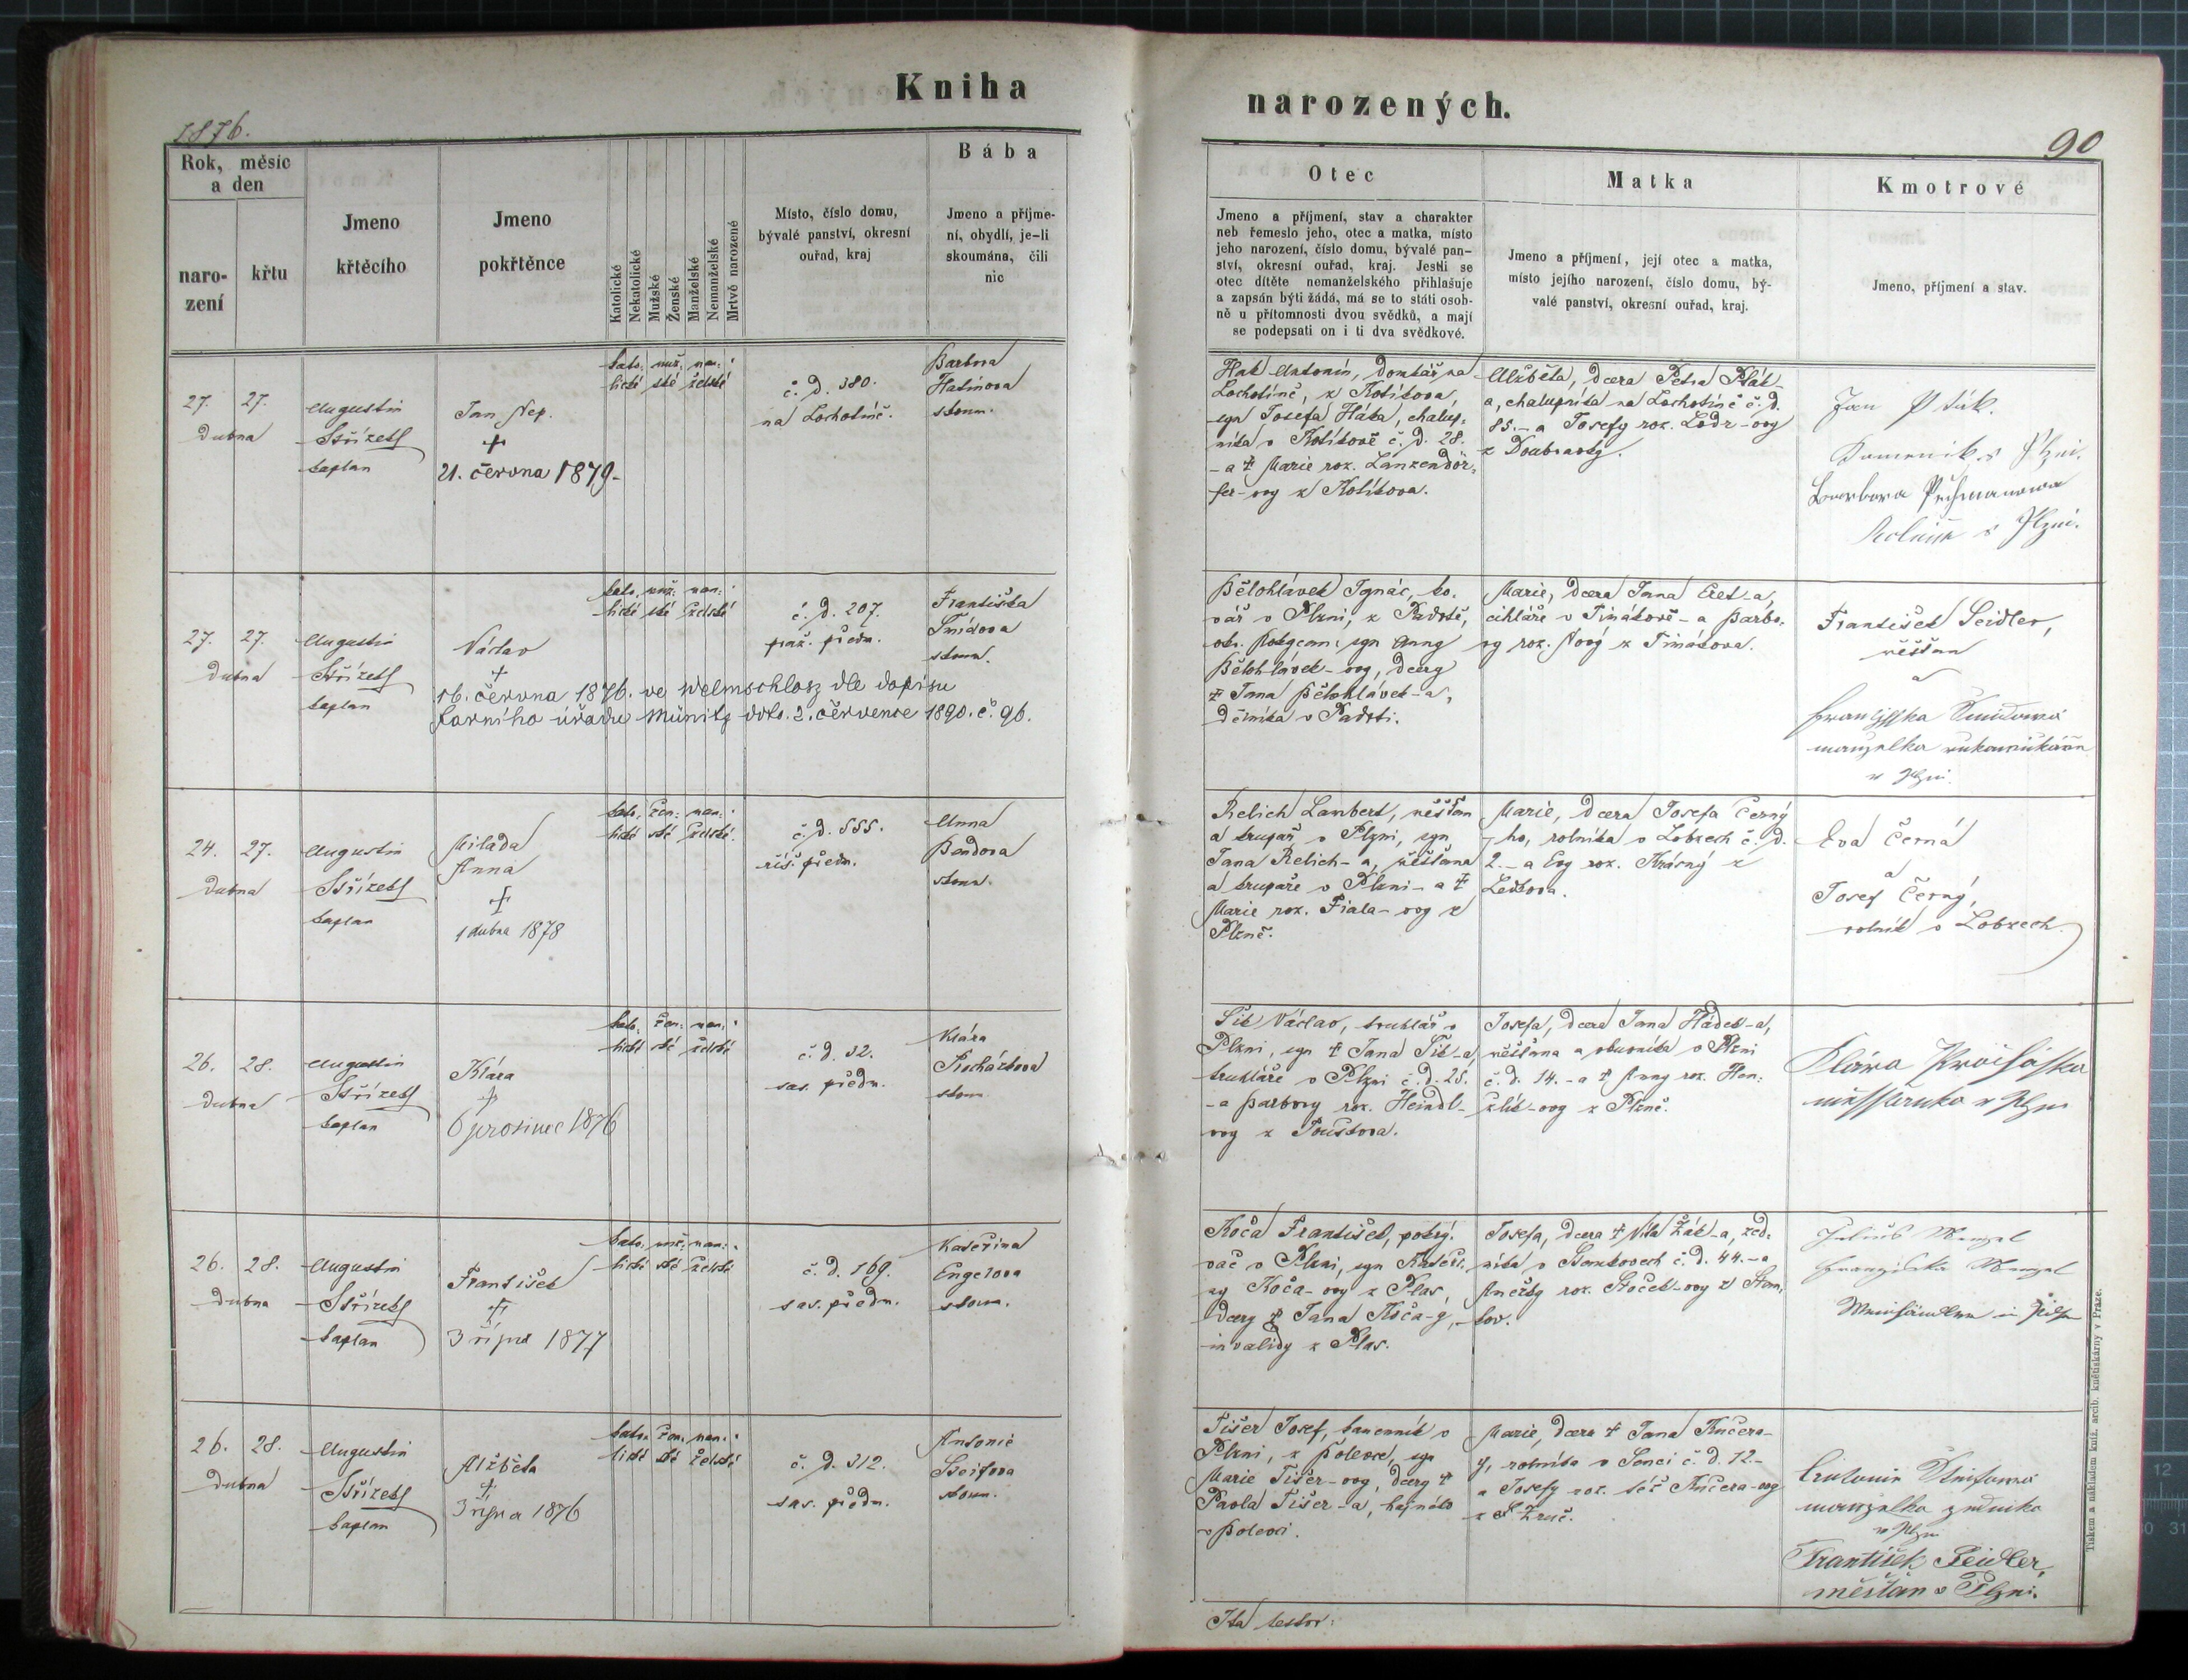 Kniha
1876.
Rok, měsíc
a den
naro-
zení
křtu
Jmeno
křtěcího
Jmeno
pokřtěnce
Katolické
Nekatolické
Mužské
Ženské
Manželské
Nemanželské
Mrtvě narozené
Místo, číslo domu,
bývalé panství, okresní
ouřad, kraj
Bába
Jmeno a příjme-
ní, obydlí, je-li
skoumána, čili
nic
27. 27.
dubna
Augustin
Střízek
kaplan
Jan Nep.
+
21. června 1879.
kato: muž: man:
lické ské želské
č. d. 380.
na Lochotíně.
Barbora
Hatinova
skoum.
27. 27.
dubna
Augustin
Střízek
kaplan
Václav
+
16. června 1876. ve Welmschlosz dle dopisu
farního úřadu Münitz ddto. 2. července 1890. č. 96.
kato: muž: man:
lické ské želské
č. d. 207.
praž. předm.
Františka
Šmídova
skoum.
24. 27.
dubna
Augustin
Střízek
kaplan
Milada
Anna
+
1 dubna 1878
kato: žen: man:
lické ské želské
č. d. 555.
říš. předm.
Anna
Bendova
skoum.
26. 28.
dubna
Augustin
Střízek
kaplan
Klára
+
6 prosince 1876
kato: žen: man:
lické ské želské
č. d. 32.
sas. předm.
Klára
Procházkova
skoum.
26. 28.
dubna
Augustin
Střízek
kaplan
František
+
3 října 1877
kato: muž: man:
lické ské želské
č. d. 169.
sas. předm.
Kateřina
Engelova
skoum.
26. 28.
dubna
Augustin
Střízek
kaplan
Alžběta
+
3 října 1876
kato: žen: man:
lické ské želské
č. d. 312.
sas. předm.
Antonie
Steifova
skoum.
narozených.
90
Otec
Jmeno a příjmení, stav a charakter
neb řemeslo jeho, otec a matka, místo
jeho narození, číslo domu, bývalé pan-
ství, okresní ouřad, kraj. Jestli se
otec dítěte nemanželského přihlašuje
a zapsán býti žádá, má se to státi osob-
ně u přítomnosti dvou svědků, a mají
se podepsati on i ti dva svědkové.
Matka
Jmeno a příjmení, její otec a matka,
místo jejího narození, číslo domu, bý-
valé panství, okresní ouřad, kraj.
Kmotrové
Jmeno, příjmení a stav.
Hak Antonín, domkář na
Lochotíně, z Kotíkova,
syn Josefa Háka, chalup-
níka v Kotíkově č. d. 28.
- a + Marie roz. Lanzendör-
fer-ovy z Kotíkova.
Alžběta, dcera Petra Pták-
a, chalupníka na Lochotíně č. d.
85. - a Josefy roz. Lödr-ovy
z Doubravky.
Jan Pták.
Barbora
z Plzni.
Bělohlávek Ignác, ko-
vář v Plzni, z Padrtě,
okr. Rokycan. syn Anny
Bělohlávek-ovy, dcery
+ Jana Bělohlávek-a,
dělníka v Padrti.
Marie, dcera Jana Eret-a,
cihláře v Timákově - a Barbo-
ry roz. Nový z Timákova.
František Seidler,
měšťan
a
Františka Šmidowá
manželka
w Plzni.
Relich Lambert, měšťan
a krupař v Plzni, syn
Jana Relich-a, měšťana
a krupaře v Plzni - a +
Marie roz. Fiala-ovy z
Plzně.
Marie, dcera Josefa Černý
-ho, rolníka v Lobzech č. d.
2. - a Evy roz. Krásný z
Letkova.
Eva Černá
a
Josef Černý,
rolník v Lobzech
Šik Václav, truhlář v
Plzni, syn + Jana Šik-a,
truhláře v Plzni č. d. 25.
- a Barbory roz. Heindl-
ovy z Touškova.
Josefa, dcera Jana Hádek-a,
měšťana a obuvníka v Plzni
č. d. 14. - a + Anny roz. Hon-
zlík-ovy z Plzně.
Klára
w Plzni
Koča František, pokrý-
vač v Plzni, syn Kateři-
ny Koča-ovy z Plas,
dcery + Jana Koča-y,
invalidy z Plas.
Josefa, dcera + Víta Žák-a, zed-
níka v Štenkovech č. d. 44. - a
Anežky roz. Koček-ovy z Šten-
kov.
Wenzel
Wenzel
Weinhändler in Pilsen
Fišer Josef, kameník v
Plzni, z Bolevce, syn
Marie Fišer-ovy, dcery +
Pavla Fišer-a, hajného
v Bolevci.
Marie, dcera + Jana Kučera-
y, rolníka v Senci č. d. 12. -
a Josefy roz. též Kučera-ovy
z Zruč.
Antonie Steifowá
manželka zedníka
w Plzni
František Seidler,
měšťan v Plzni.
Ita testor:
Tiskem a nákladem kníž. arcib. knětiskárny v Praze.